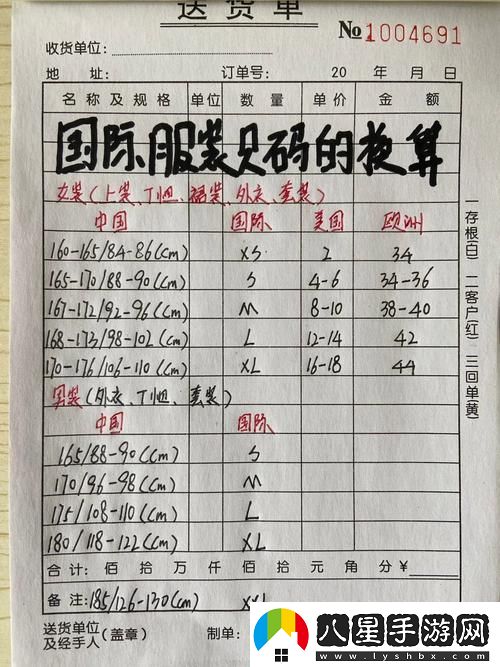 送货单
№1004691
收货单位:
地 址: 订单号: 20 年 月 日
名称及规格 单位 数量 单价 金额
国际服装尺码的换算
女装(上装、T恤、裙装、外衣、套装)
中国 国际 美国 欧洲
160-165/84-86(cm) XS 2 34
165-170/88-90(cm) S 4-6 34-36
167-172/92-96(cm) M 8-10 38-40
168-173/98-102(cm) L 12-14 42
170-176/106-110(cm) XL 16-18 44
男装(外衣、T恤、套装)
中国 国际
165/88-90(cm) S
170/96-98(cm) M
175/108-110(cm) L
180/118-122(cm) XL
合计: 佰 拾 万 仟 佰 拾 元 角 分 ¥
备注: 185/126-130(cm) XXL
送货单位及经手人(盖章) 制单:
一存根(白) 二客户(红) 三回单(黄)
八星手游网
www.lyshbx.com